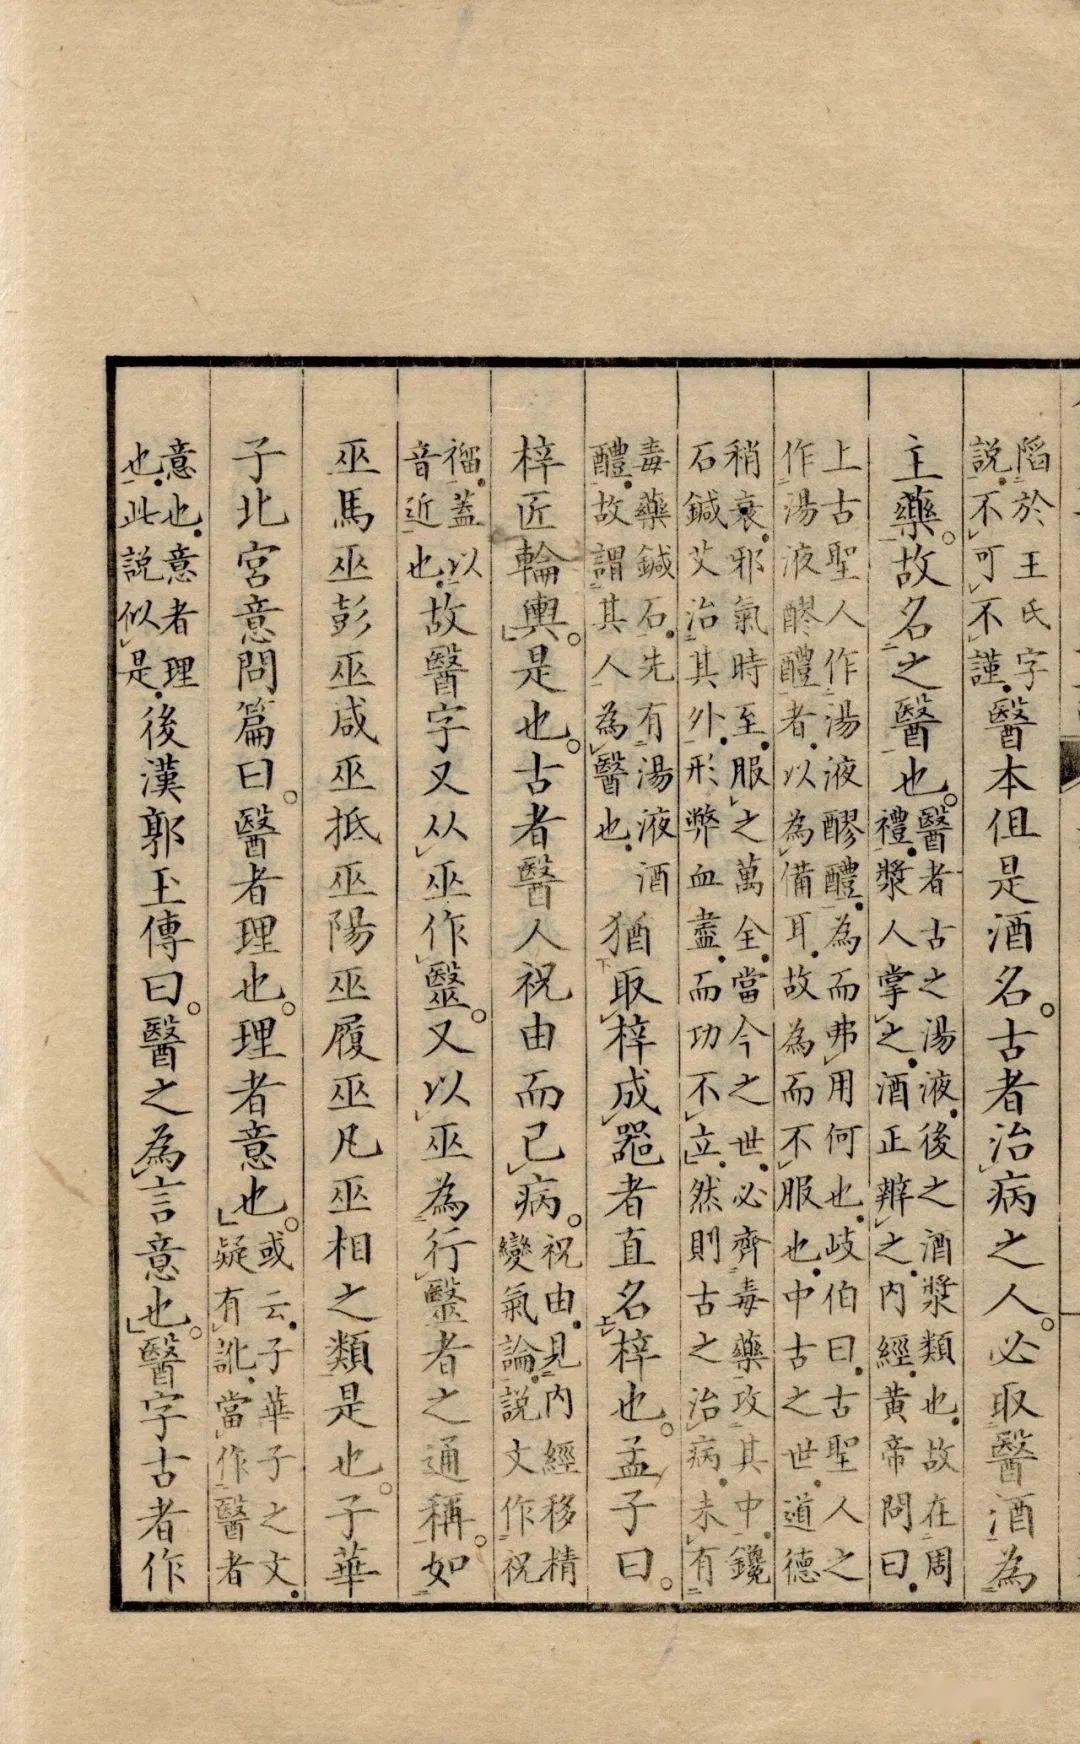 陷於王氏字
説。不可不謹。
醫本伹是酒名。古者治病之人。必取醫酒為
主藥。故名之醫也。
醫者古之湯液。後之酒漿類也。故在周
禮。漿人掌之。酒正辨之。内經。黄帝問曰。
上古聖人作湯液醪醴。為而弗用何也。岐伯曰。古聖人之
作湯液醪醴者。以為備耳。故為而不服也。中古之世。道德
稍衰。邪氣時至。服之萬全。當今之世。必齊毒藥攻其中。鑱
石鍼艾治其外。形弊血盡。而功不立。然則古之治病。未有
毒藥鍼石。先有湯液酒
醴。故謂其人為醫也。
猶取梓成器者直名梓也。孟子曰。
梓匠輪輿。是也。古者醫人祝由而已病。
祝由。見内經移精
變氣論。説文作祝
䄂。蓋以
音近也。
故醫字又从巫作毉。又以巫為行毉者之通稱。如
巫馬巫彭巫咸巫抵巫陽巫履巫凡巫相之類是也。子華
子北宮意問篇曰。醫者理也。理者意也。
或云。子華子之文。
疑有訛。當作醫者
意也。意者理
也。此説似是。
後漢郭玉傳曰。醫之為言意也。醫字古者作